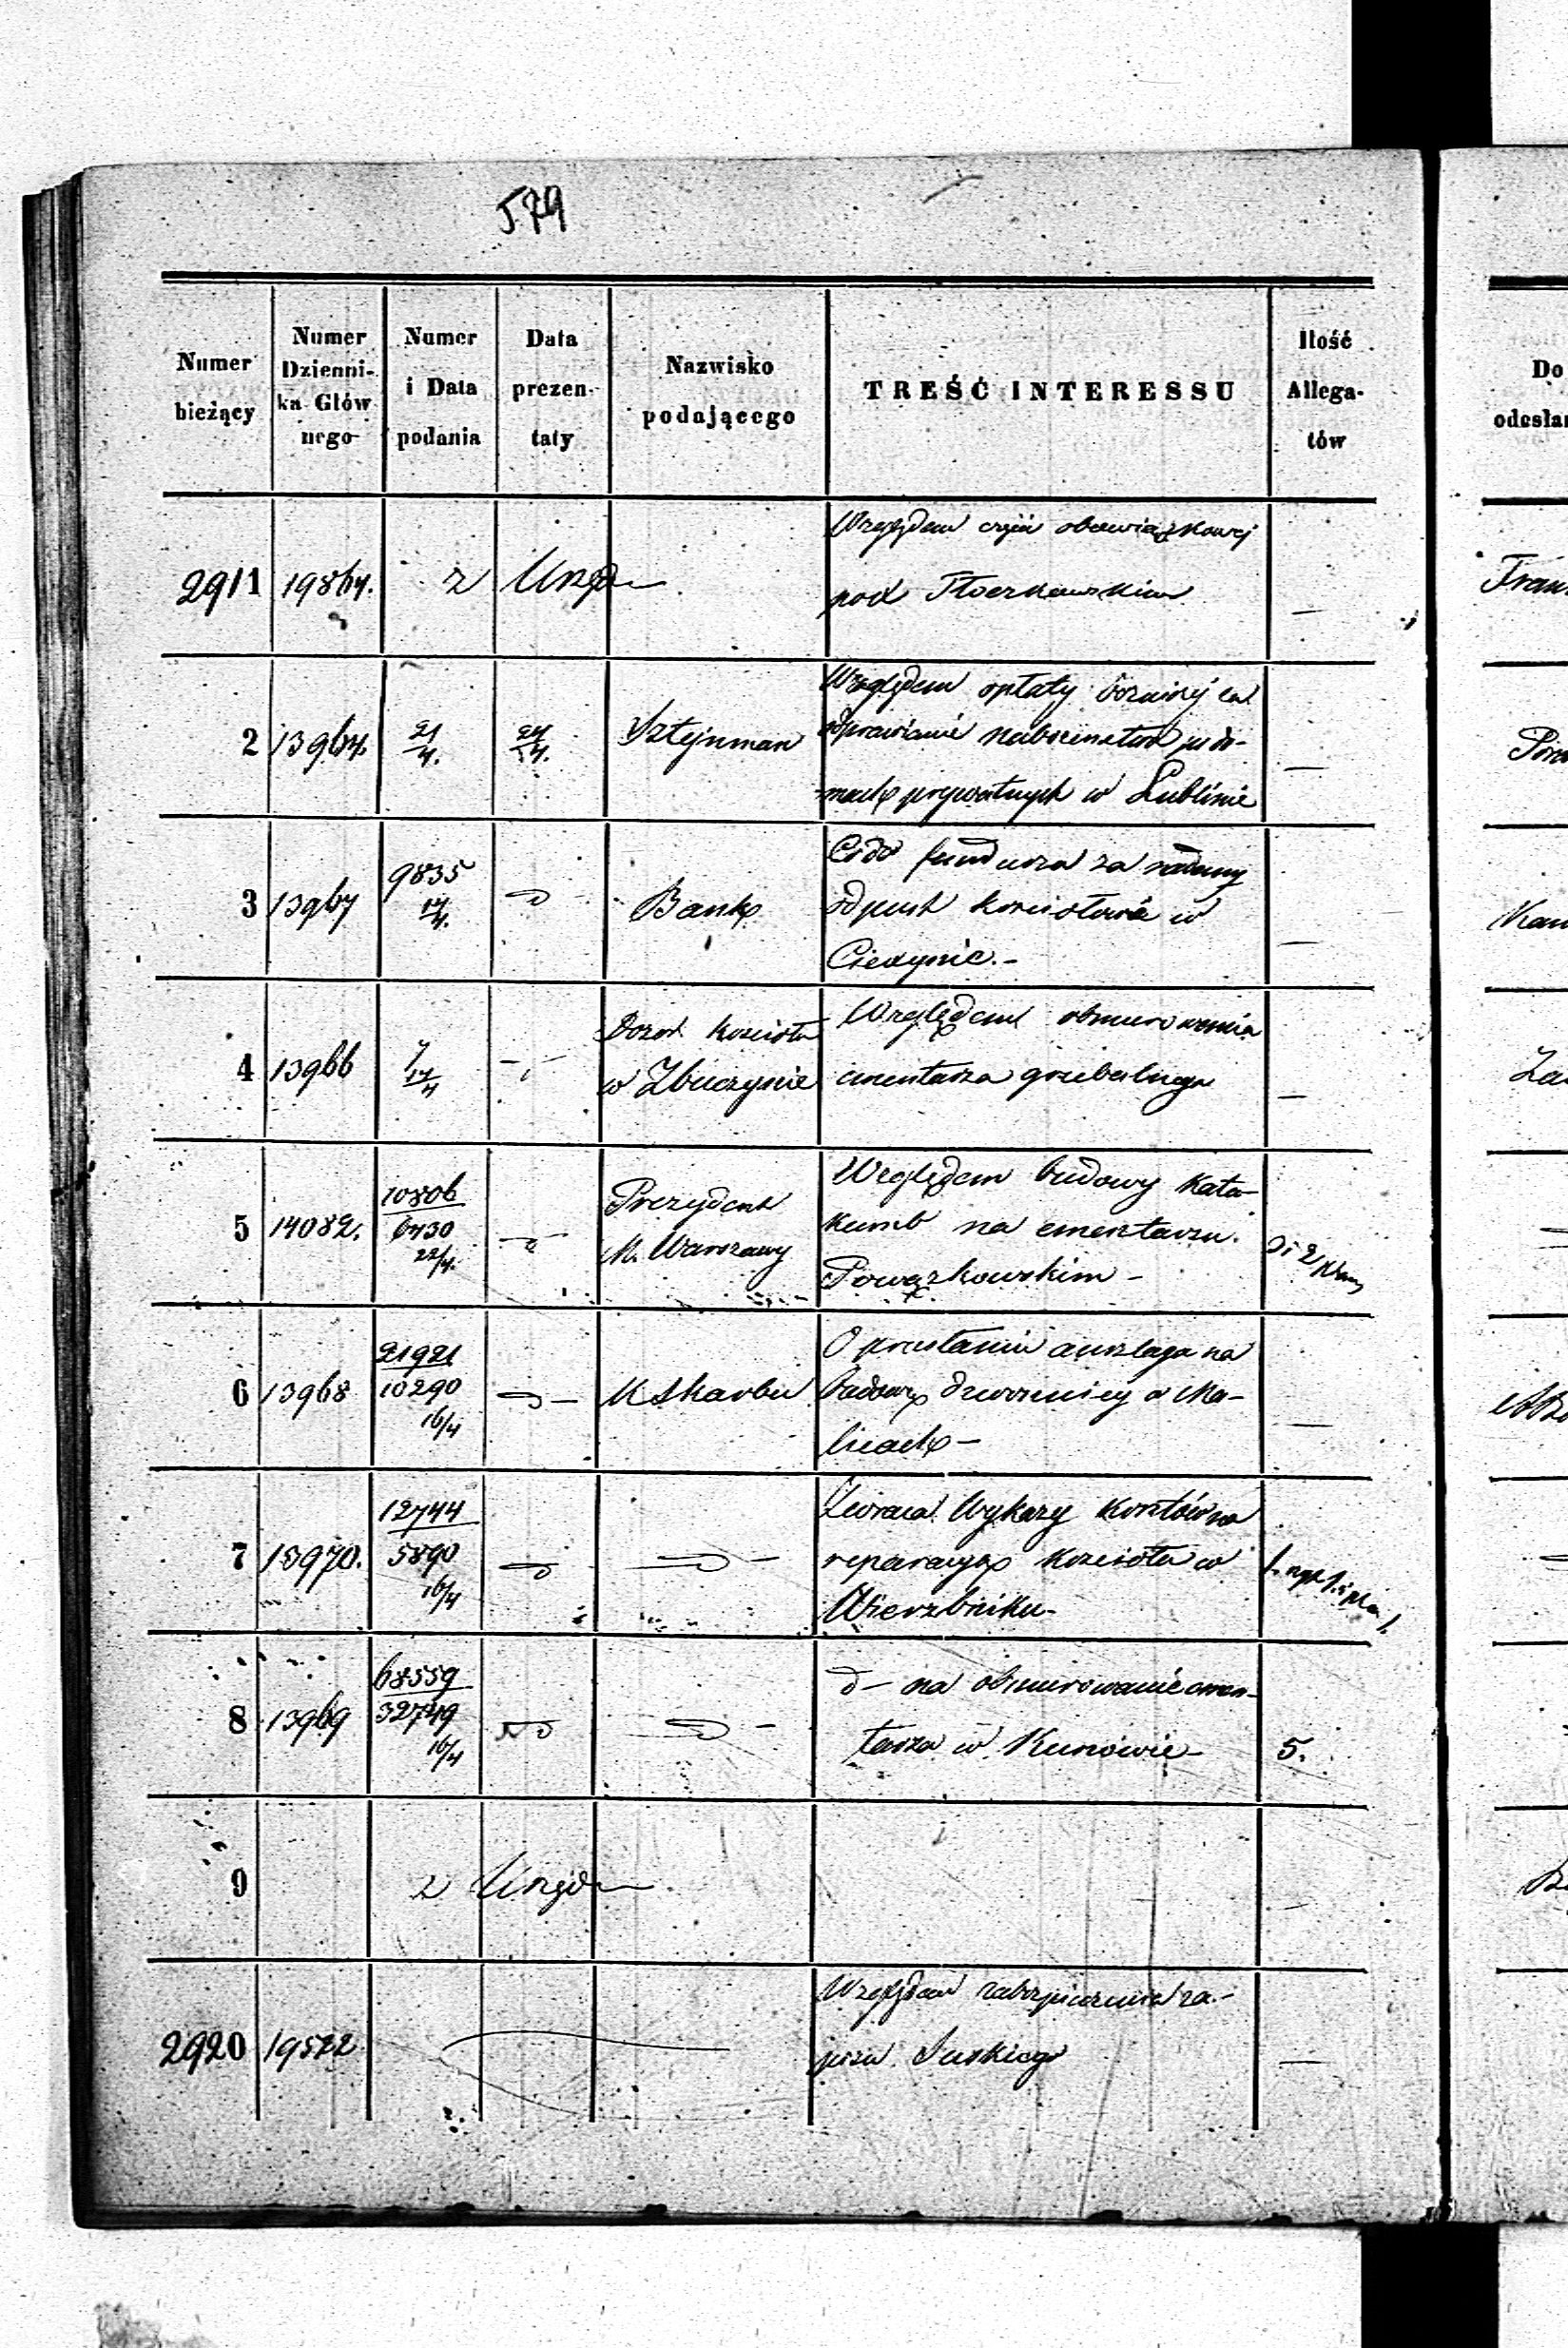 579
Numer bieżący
Numer Dzienni-ka Głów nego
Numer i Data podania
Data prezen-taty
Nazwisko podającego
TREŚĆ INTERESSU
Ilość Allega-tów
Do odesłan
2911 19864. z Urzędu
Względem części obowiązkowej
pod
—
Fran
2 13964. 21/4. 24/4. Sztejnman
Względem opłaty bożniczej za
odprawianie nabożeństwa po do-
mach prywatnych w Lublinie
—
3 13967 9835 17/4. Bank
Co do funduszu za
odpust kościołowi w
—
4 13966 17/4
Dozór kościoła
w Zbuczynie
Względem obmurowania
cmentarza grzebalnego
—
5 14082. 10806 6430 22/4.
Prezydent
M. Warszawy
Względem budowy Kata-
kumb na cmentarzu
Powązkowskim —
6 13968 21921 10290 16/4 — K Skarbu
O przesłaniu anszlagu na
budowę dzwonnicy w Ma-
licach —
—
7 13970. 12744 5890 16/4
Zwraca Wykazy Kosztów na
reparacyą Kościoła w
Wierzbniku —
8 13969 68559 32749 16/4
d — na obmurowanie cmen-
tarza w Kunowie —
5.
9 z Urzędu
2920 19522
Względem zabezpieczenia za-
pisu Suskiego
—